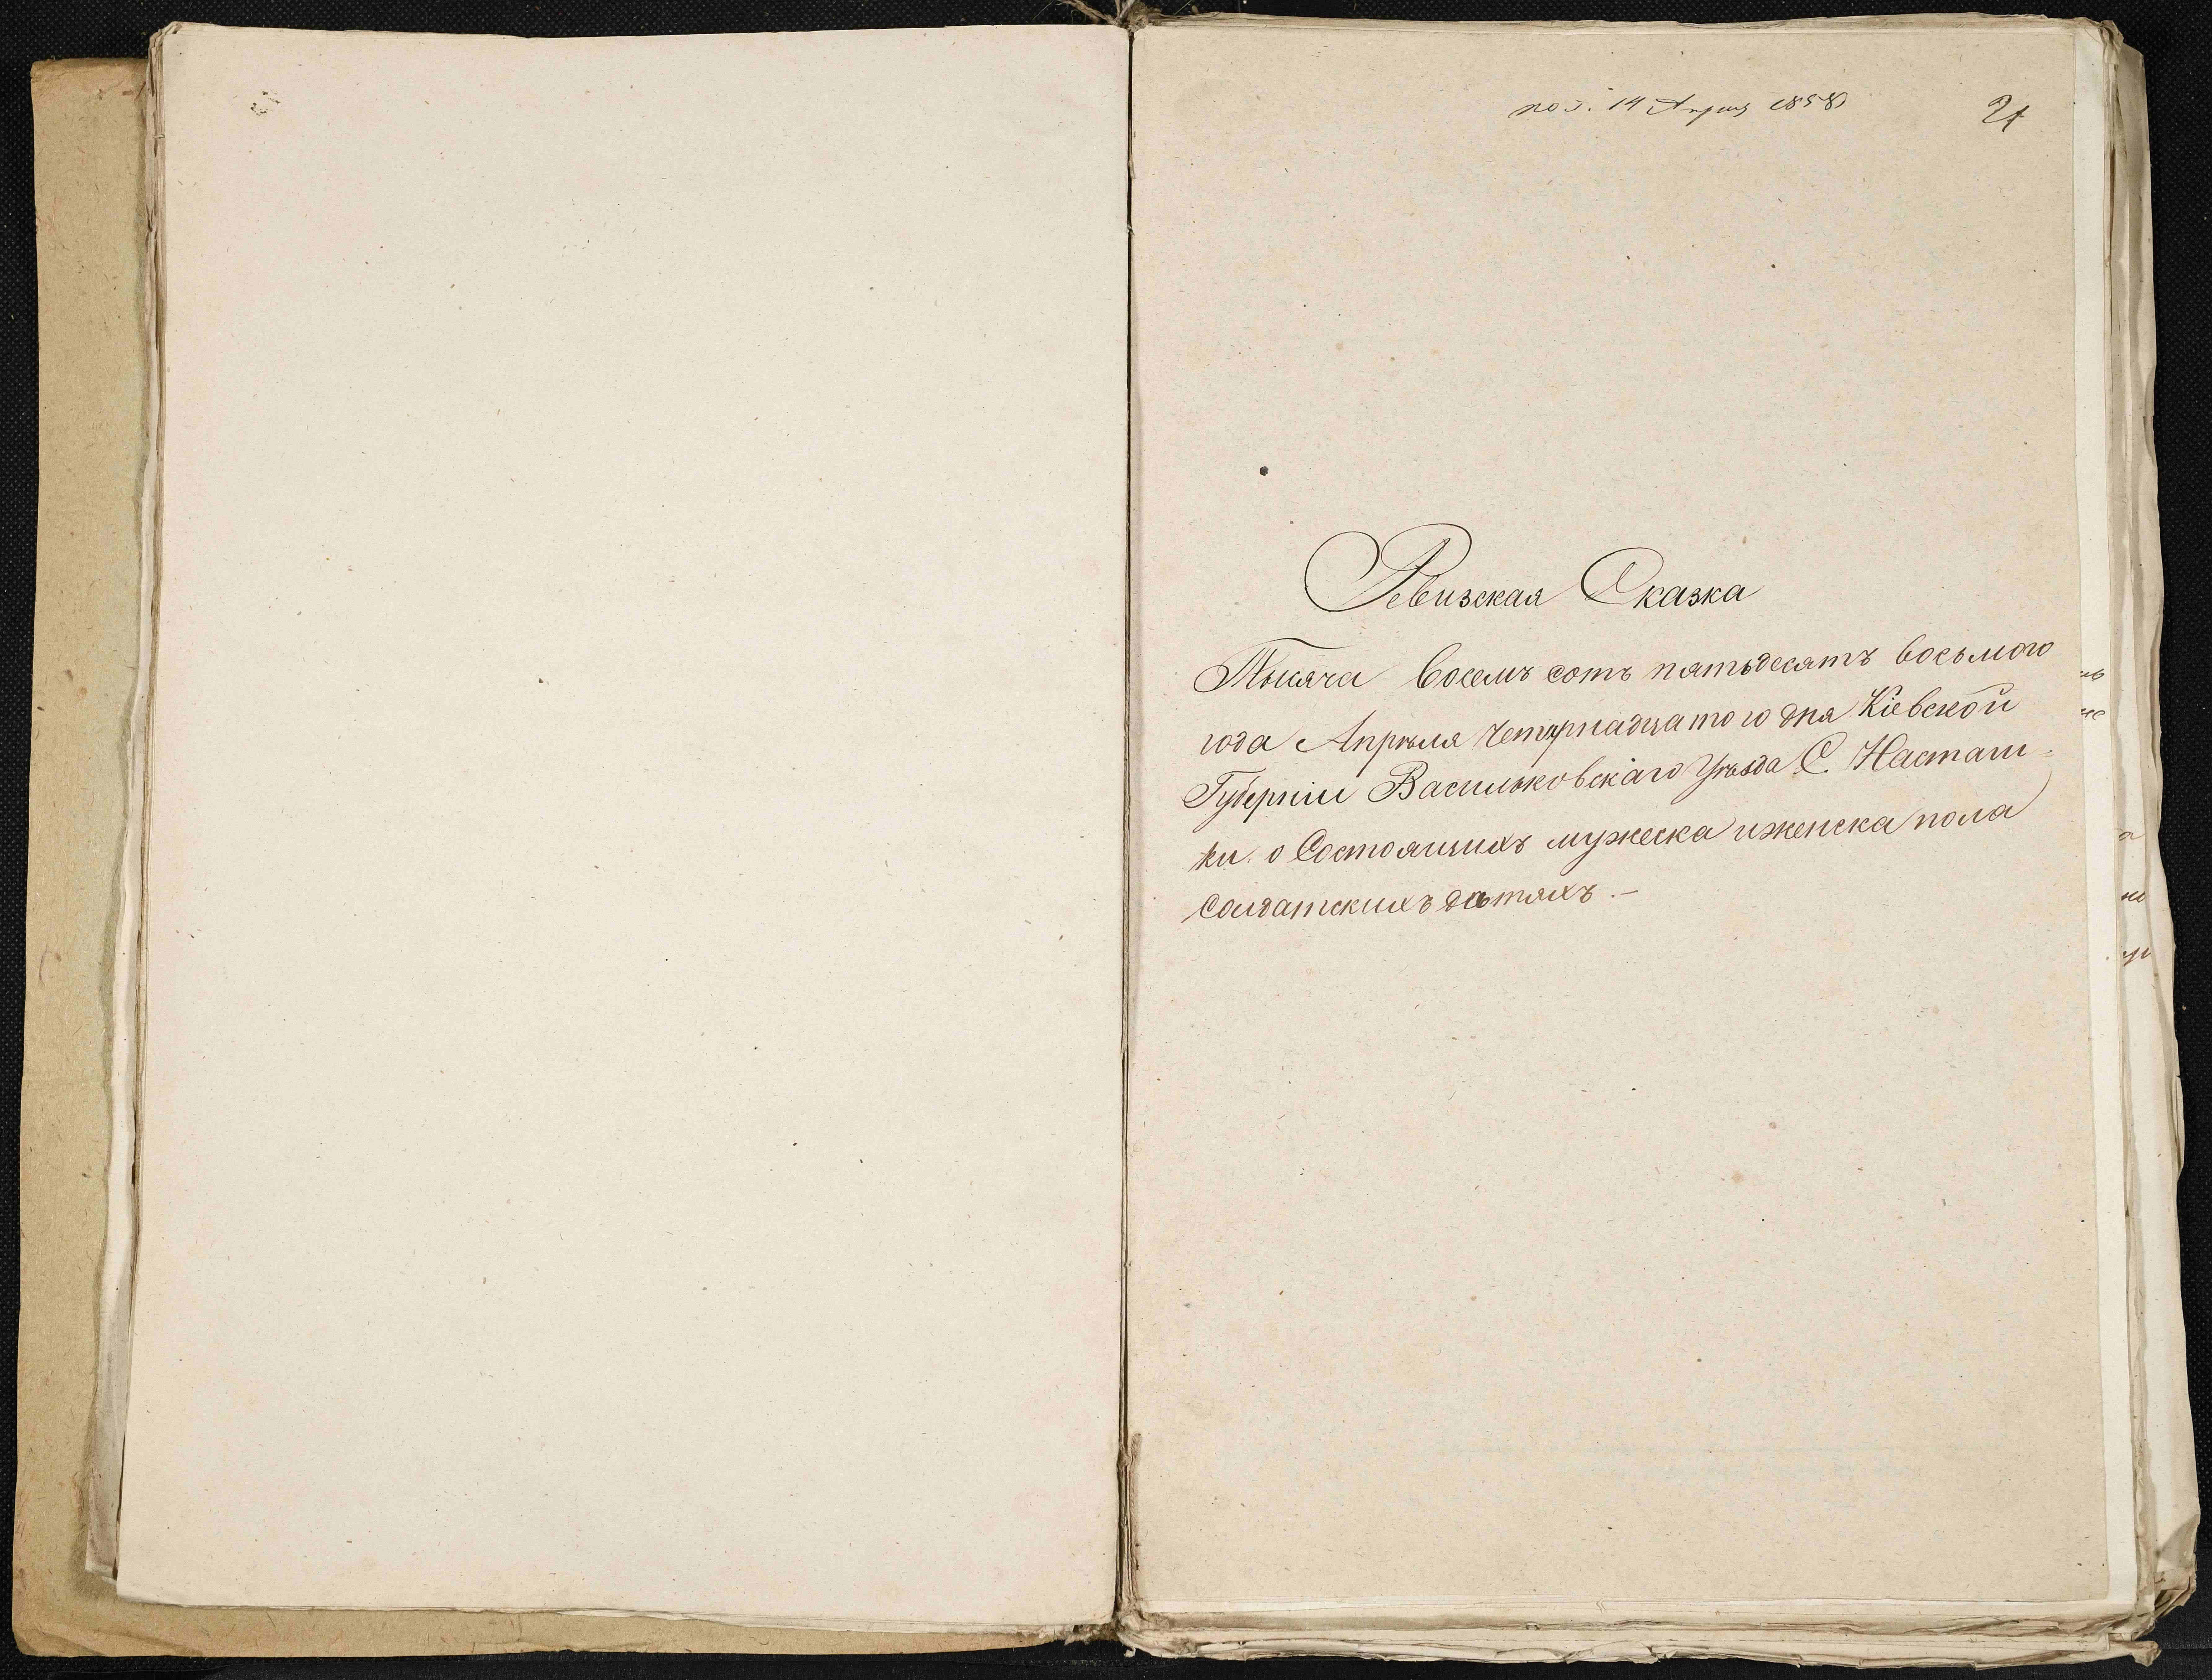 14 Апреля 1858
21
Ревизская Сказка
Тысяча восемъ сотъ пятьдесятъ восьмого
года Апрѣля четырнадцатого дня Кіевской
Губерніи Васильковскаго Уѣзда С. Насташ=
ки. о Состоящихъ мужеска и женска пола
солдатскихъ дѣтяхъ.—